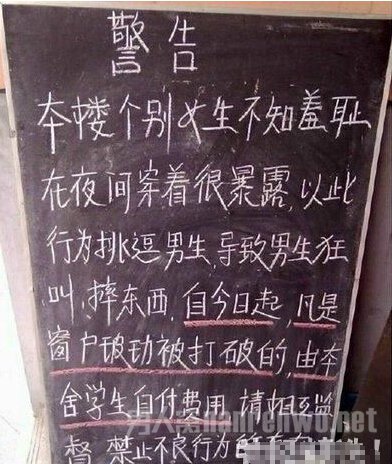 警告
本楼个别女生不知羞耻
在夜间穿着很暴露,以此
行为挑逗男生,导致男生狂
叫,摔东西,自今日起,凡是
窗户玻功被打破的,由本
舍学生自付费用 请相互监
督,禁止不良行为
nanrenwo.net